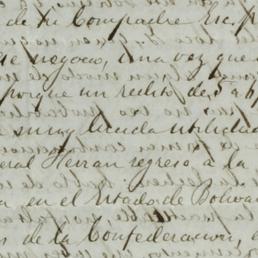 de tu Compadre Esc.
negocio, una vez que
porque un redito de 5 a
su muy linda utilidad
eral Herran regreso a la
a en el Estado de Bolivar
s de la Confederacion, e